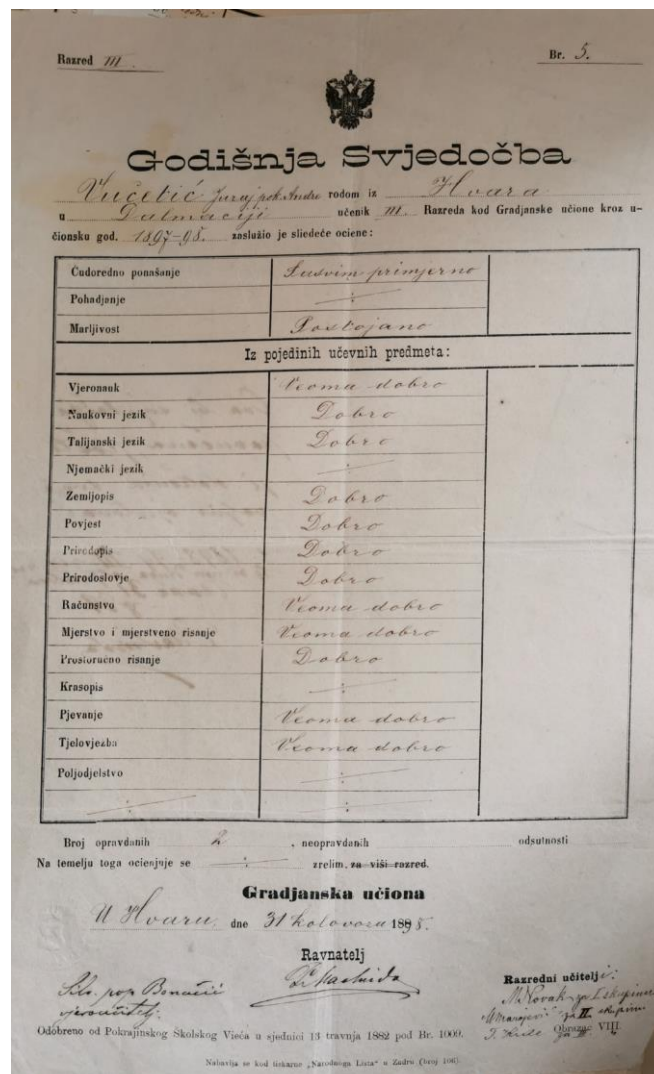 Razred III. Br. 5.
Godišnja Svjedočba
Vučetić Juraj pok. Andre rodom iz Hvara
u Dalmaciji učenik III. Razreda kod Gradjanske učione kroz u-
čionsku god. 1897-98. zaslužio je sliedeće ociene:
Ćudoredno ponašanje Susvim primjerno
Pohadjanje ÷
Marljivost Postojano
Iz pojedinih učevnih predmeta:
Vjeronauk Veoma dobro
Naukovni jezik Dobro
Talijanski jezik Dobro
Njemački jezik ÷
Zemljopis Dobro
Povjest Dobro
Prirodopis Dobro
Prirodoslovje Dobro
Računstvo Veoma dobro
Mjerstvo i mjerstveno risanje Veoma dobro
Prostoručno risanje Dobro
Krasopis ÷
Pjevanje Veoma dobro
Tjelovježba Veoma dobro
Poljodjelstvo ÷
÷ ÷
Broj opravdanih 2, neopravdanih odsutnosti
Na temelju toga ocienjuje se ÷ zrelim za viši razred.
Gradjanska učiona
U Hvaru, dne 31 kolovoza 1898.
Ravnatelj
Razredni učitelji:
pop Bonačić
vjeroučitelj
M. Novak za I. skupinu
za II. skupinu
za III
Odobreno od Pokrajinskog Školskog Vieća u sjednici 13 travnja 1882 pod Br. 1009. Obrazac VIII.
Nabavlja se kod tiskarne „Narodnoga Lista“ u Zadru (broj 106).